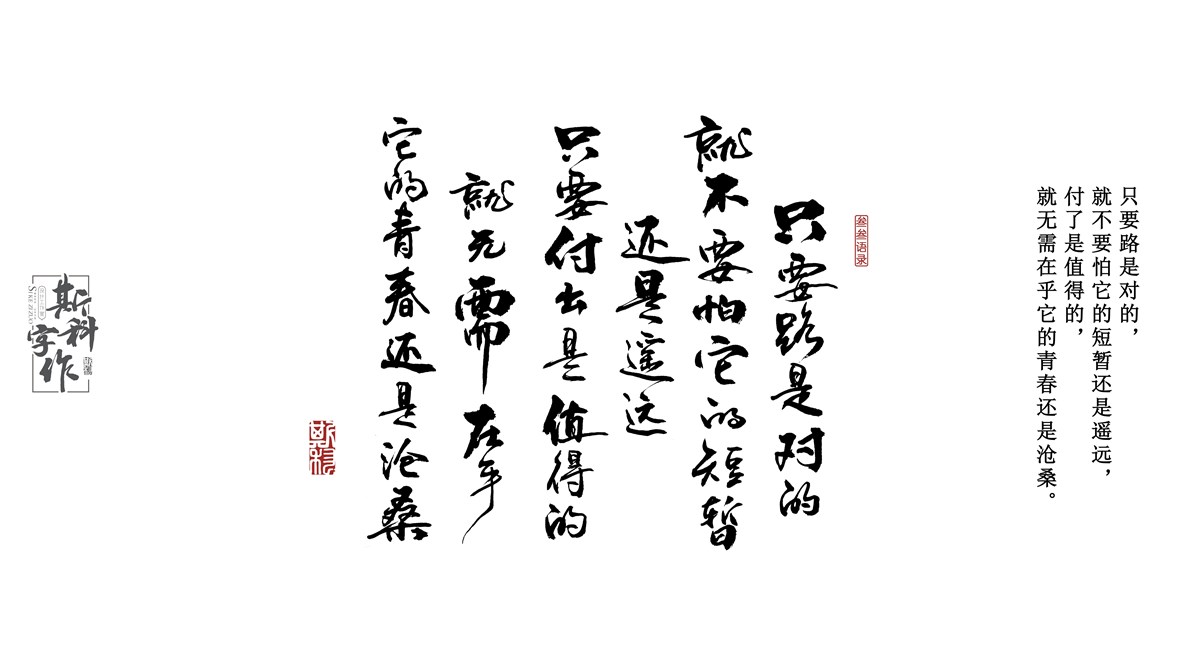 只要路是对的，
就不要怕它的短暂还是遥远，
付了是值得的，
就无需在乎它的青春还是沧桑。
叁叁语录
只要路是对的
就不要怕它的短暂
还是遥远
只要付出是值得的
就无需在乎
它的青春还是沧桑
斯科
斯科
字作